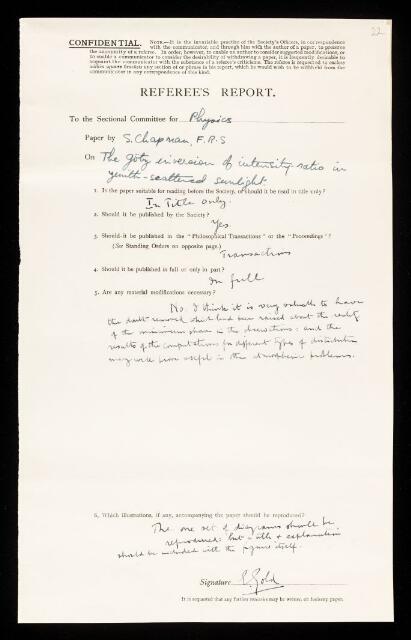 22
CONFIDENTIAL.
NOTE.—It is the invariable practice of the Society's Officers, in correspondence
with the communicator, and through him with the author of a paper, to preserve
the anonymity of a referee. In order, however, to enable an author to consider suggested modifications, or
to enable a communicator to consider the desirability of withdrawing a paper, it is frequently desirable to
acquaint the communicator with the substance of a referee's criticisms. The referee is requested to enclose
within square brackets any section of or phrase in his report, which he would wish to be withheld from the
communicator in any correspondence of this kind.
REFEREE'S REPORT.
To the Sectional Committee for Physics
Paper by S. Chapman, F.R.S
On The götz inversion of intensity ratio in
zenith-scattered sunlight.
1. Is the paper suitable for reading before the Society, or should it be read in title only?
In Title only.
2. Should it be published by the Society?
Yes
3. Should it be published in the "Philosophical Transactions" or the "Proceedings"?
(See Standing Orders on opposite page.)
Transactions
4. Should it be published in full or only in part?
In full
5. Are any material modifications necessary?
No. I think it is very valuable to have
the doubt removed which had been raised about the reality
of the minimum phase in the observations: and the
results of the computations for different types of distribution
may well prove useful in other atmospheric problems.
6. Which illustrations, if any, accompanying the paper should be reproduced?
The one set of diagrams should be
reproduced: but title & explanation
should be included with the figure itself.
Signature E. Gold
It is requested that any further remarks may be written on foolscap paper.